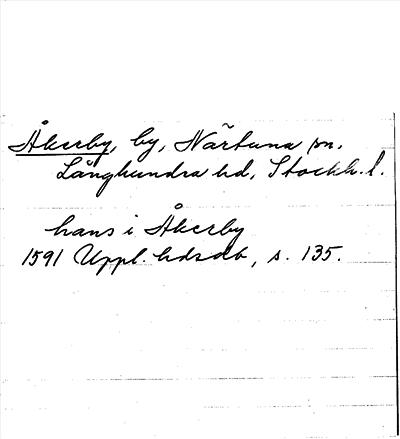 Åkerby, by, Närtuna sn,
Långhundra hd, Stockh. l.
hans i Åkerby
1591 Uppl. hdsdb, s. 135.